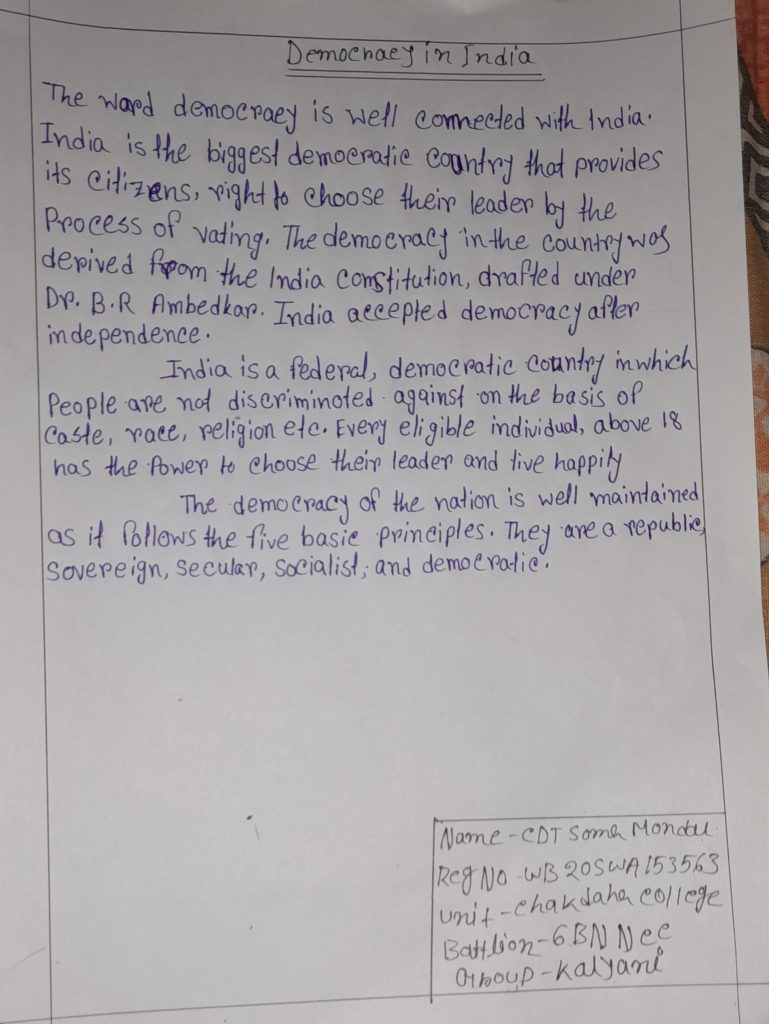 Democracy in India
The word democracy is well connected with India.
India is the biggest democratic country that provides
its citizens, right to choose their leader by the
Process of vating. The democracy in the country was
derived from the India Constitution, drafted under
Dr. B.R Ambedkar. India accepted democracy after
independence.
India is a federal, democratic country in which
People are not discriminated against on the basis of
Caste, race, religion etc. Every eligible individual, above 18
has the Power to choose their leader and live happily
The democracy of the nation is well maintained
as it follows the five basic principles. They are a republic,
Sovereign, Secular, Socialist, and democratic.
Name - CDT Soma Mondal
Reg No - WB20SWA153563
Unit - Chakdaha College
Battlion - 6 BN Ncc
Group - Kalyani